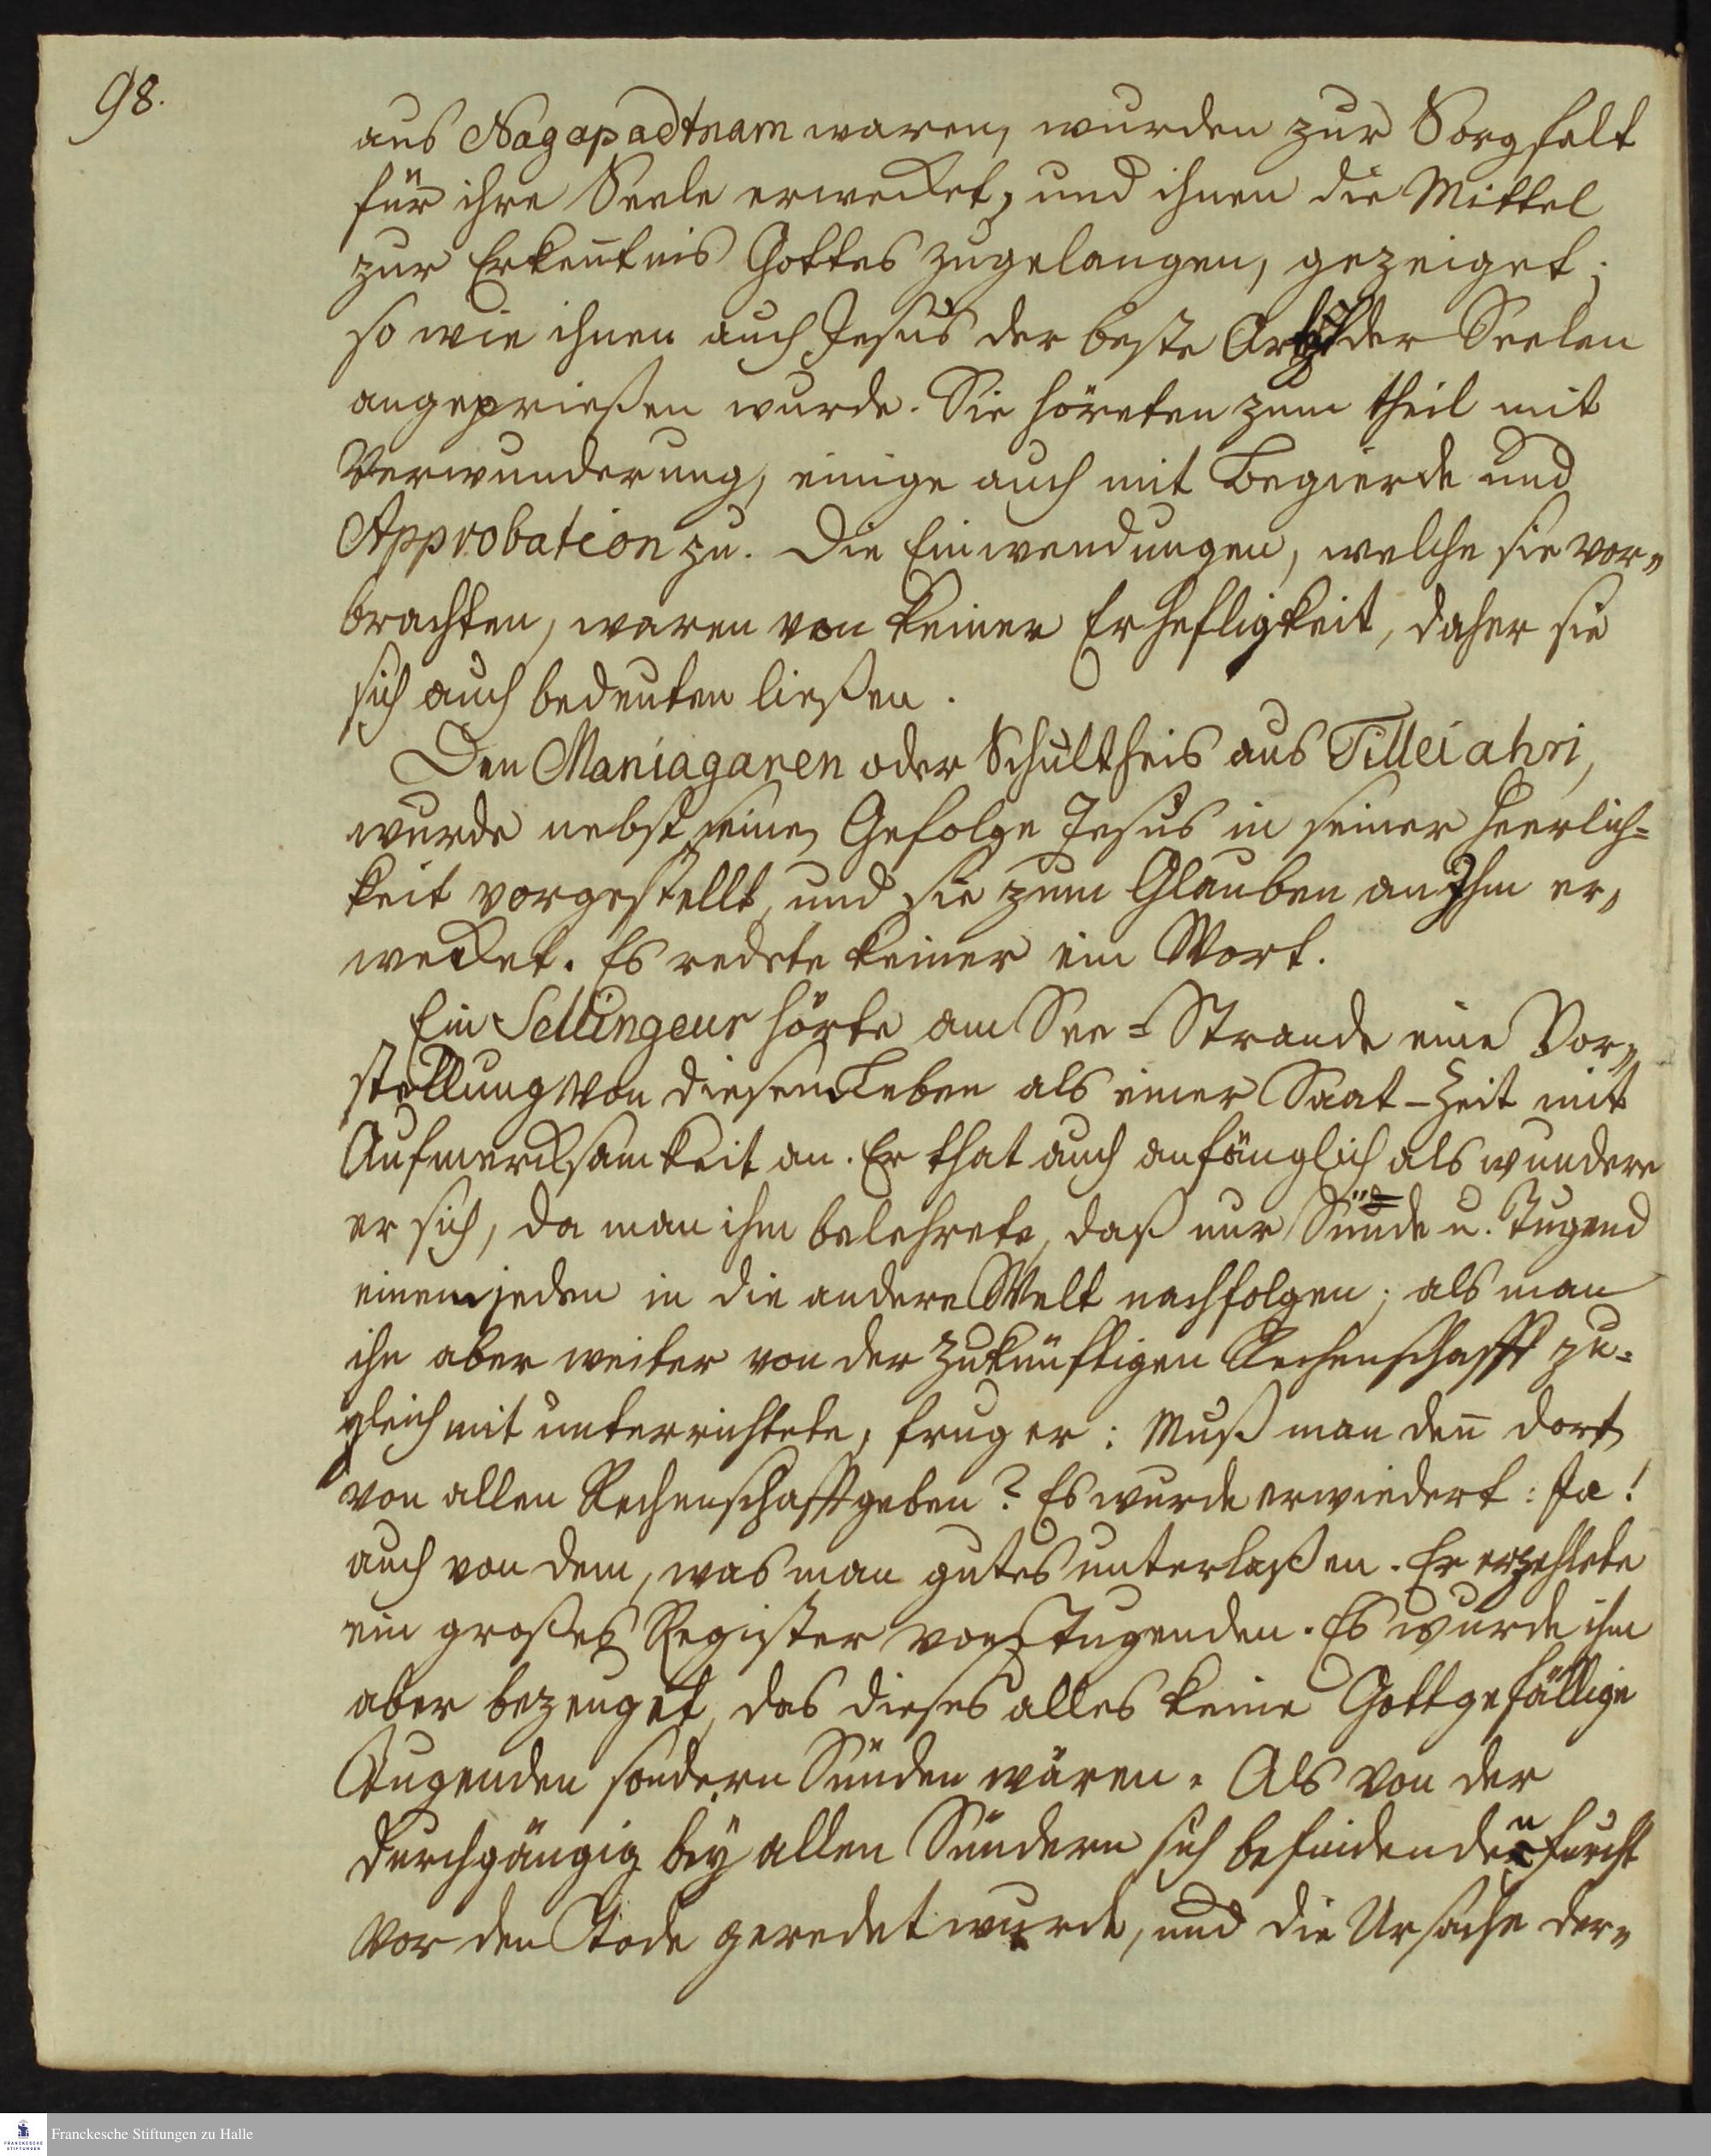 98.
aus Nagapadtnam waren, wurden zur Sorgfalt
für ihre Seele erwecket, und ihnen die Mittel
zur Erkentnis Gottes zugelangen, gezeiget;
so wie ihnen auch Jesus der beste Artzt der Seelen
angeprießen wurde. Sie höreten zum theil mit
Verwunderung, einige auch mit Begierde und
Approbation zu. Die Einwendungen, welche sie vor„
brachten, waren von keiner Erhefligkeit, daher sie
sich auch bedeuten ließen.
Den Maniagaren oder Schultheis aus Tilleiahri,
wurde nebst seinen Gefolge Jesus in seiner Herrlich=
keit vorgestellt, und sie zum Glauben an Ihm er„
wecket. Es redete keiner ein Wort.
Ein Sellingeur hörte am See=Strande eine Vor„
stellung von diesem Leben als einer Saat-Zeit mit
Aufmercksamkeit an. Er that auch anfänglich als wundere
er sich, da man ihm belehrete, daß nur Sünde u. Tugend
einem jeden in die andere Welt nachfolgen; als man
ihn aber weiter von der zukünftigen Rechenschafft zu=
gleich mit unterrichtete, frug er: Muß man den dort
von allen Rechenschafft geben? Es wurde erwiedert: Ja!
auch von dem, was man gutes unterlaßen. Er erzehlete
ein großes Register von Tugenden. Es wurde ihm
aber bezeuget, das dieses alles keine Gottgefällige
Tugenden sondern Sünden wären. Als von der
durchgängig bey allen Sündern sich befindenden furcht
vor den Tode geredet wurde, und die Ursache der„
Franckesche Stiftungen zu Halle